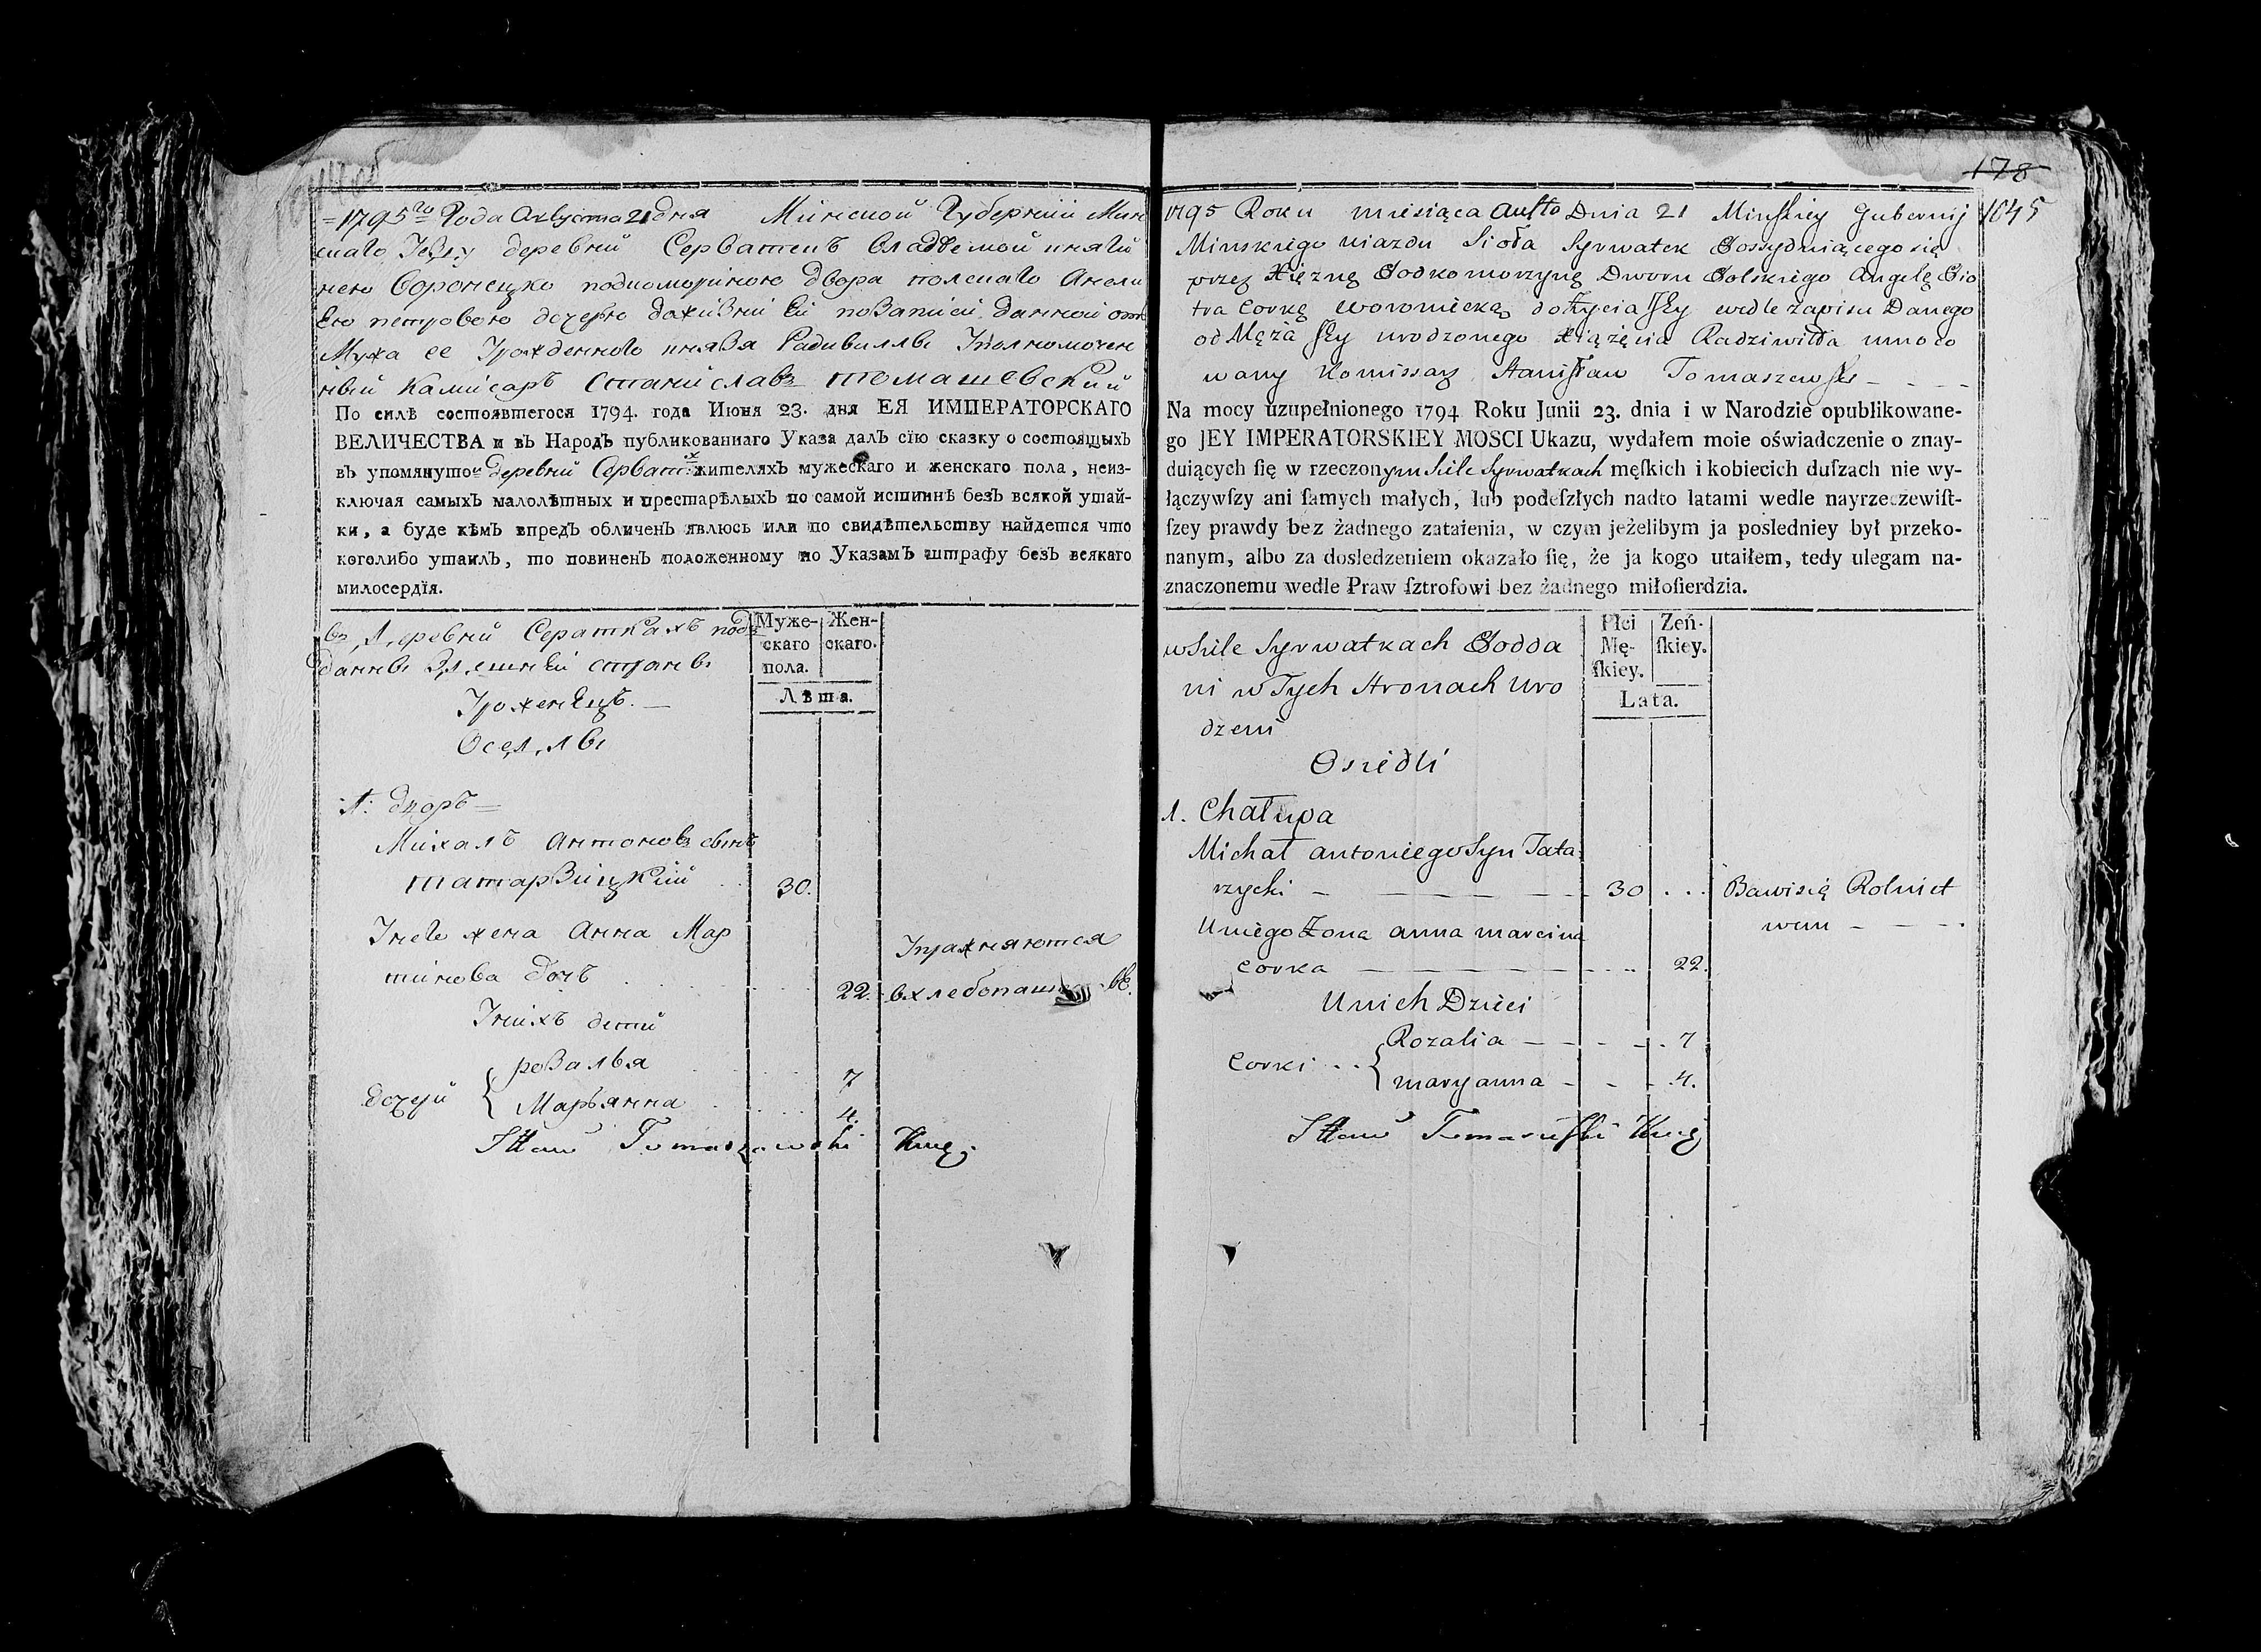 =1795го Года Августа 21 дня Минской Губернии Мин
скаго Уезду деревни Серватепъ владѣемой княги
нею Воронецко подкоморiною двора полскаго Анели
Ею петровою дочерю даживнi Ей по Записи данной отъ
Мужа ее Урожденного князя Радивилла Уполномочен
ный Камисаръ Станиславъ томашевский
По силѣ состоявшегося 1794. года Июня 23. дня ЕЯ ИМПЕРАТОРСКАГО
ВЕЛИЧЕСТВА и въ Народъ публикованнаго Указа далъ сїю сказку о состоящыхъ
въ упомянутой деревни Серватх жителяхъ мужескаго и женскаго пола, неиз-
ключая самыхъ малолѣтныхъ и престарѣлыхъ по самой истиннѣ безъ всякой утай-
ки, а буде кѣмъ впредъ обличенъ явлюсь или по свидѣтельству найдется что
коголибо утаилъ, то повиненъ положенному по Указамъ штрафу безъ всякаго
милосердїя.
въ Деревни Сераткахъ подъ
данны Здешней страны
Уроженецъ.
Оседлы
Муже-
скаго
пола.
Жен-
скаго.
Лѣта.
1: дворъ
Михалъ антоновъ сынъ
татарзицкий 30.
Унего жена Анна Мар
тинова дочь 22.
Упражняются
в хлебопаш
Унихъ дети
дочери
розалья 7
Марьянна 4
Sttaw Tomaszewski Kmę
178
1645
1795 Roku miesiąca Austo Dnia 21 Minſkiey Gubernij
Minskiego uiazdu Sioła Syrwatek Possyduiącego się
przez Xiężnę Podkomorzynę Dworu Polskiego Angelę Pio
tra Corkę Woroniecką dożycia Jey wedle zapisu Danego
od Męża Jey urodzonego Xiążęcia Radziwiłła umoco
wany Komissarz Stanisław Tomaszewſki
Na mocy uzupełnionego 1794 Roku Junii 23. dnia i w Narodzie opublikowane-
go JEY IMPERATORSKIEY MOSCI Ukazu, wydałem moie oświadczenie o znay-
duiących ſię w rzeczonym Siele Syrwatkach męſkich i kobiecich duſzach nie wy-
łączywſzy ani ſamych małych, lub podeſzłych nadto latami wedle nayrzeczewiſt-
ſzey prawdy bez żadnego zataienia, w czym jeżelibym ja posledniey był przeko-
nanym, albo za dosledzeniem okazało ſię, że ja kogo utaiłem, tedy ulegam na-
znaczonemu wedle Praw ſztrofowi bez żadnego miłoſierdzia.
w Siele Syrwatkach Podda
ni w Tych Stronach Uro
dzeni
Osiedli
Płci
Mę-
ſkiey.
Zeń-
ſkiey.
Lata.
1. Chałupa
Michał antoniego Syn Tata
rzycki 30
Bawi się Rolnict
wem
Uniego Zona anna marcina
Corka 22.
Unich Dzieci
Corki
Rozalia 7
maryanna 4.
Sttaw Tomaszeſki Kmę